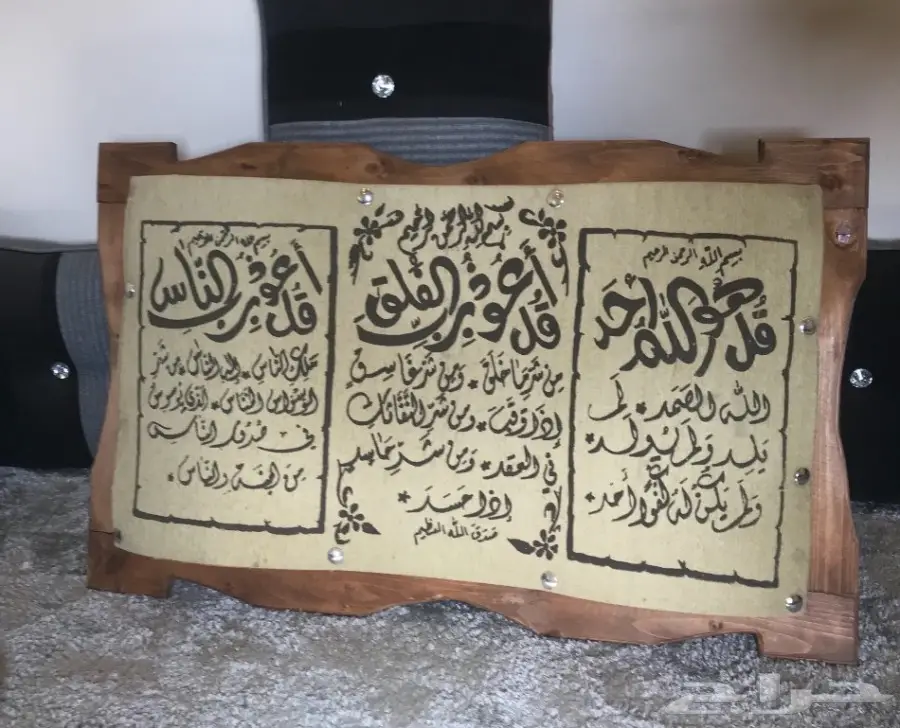 بسم الله الرحمن الرحيم
قُل هو الله أحد
الله الصمد * لم
يلد ولم يولد *
ولم يكن له كفوا أحد *
بسم الله الرحمن الرحيم
قُل أعوذ برب الفلق
من شر ما خلق * ومن شر غاسق
إذا وقب * ومن شر النفاثات
في العقد * ومن شر حاسد
إذا حسد *
صدق الله العظيم
بسم الله الرحمن الرحيم
قُل أعوذ برب الناس
ملك الناس * اله الناس * من شر
الوسواس الخناس * الذي يوسوس
في صدور الناس
من الجنة والناس *
حراج